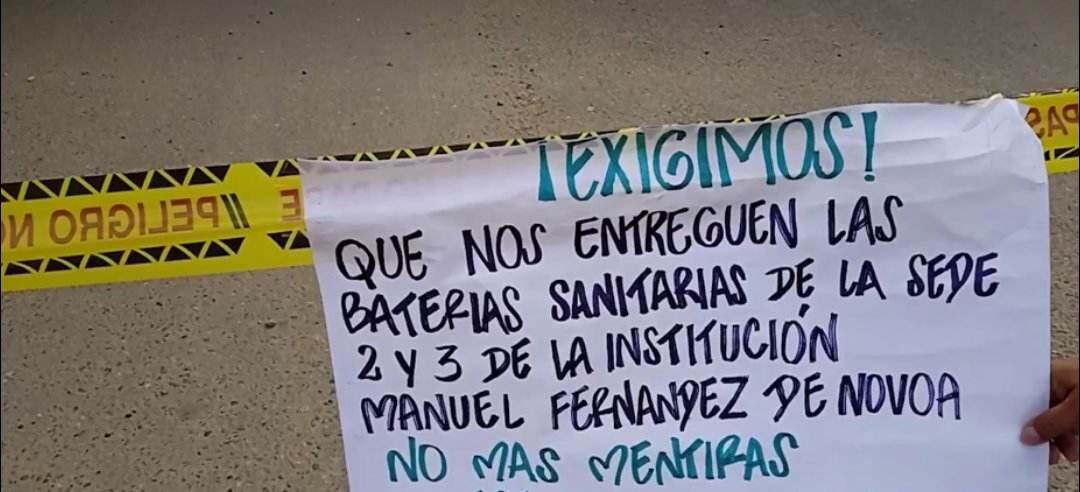 ¡EXIGIMOS!
QUE NOS ENTREGUEN LAS
BATERIAS SANITARIAS DE LA SEDE
2 Y 3 DE LA INSTITUCIÓN
MANUEL FERNANDEZ DE NOVOA
NO MAS MENTIRAS
PELIGRO NO
PAS